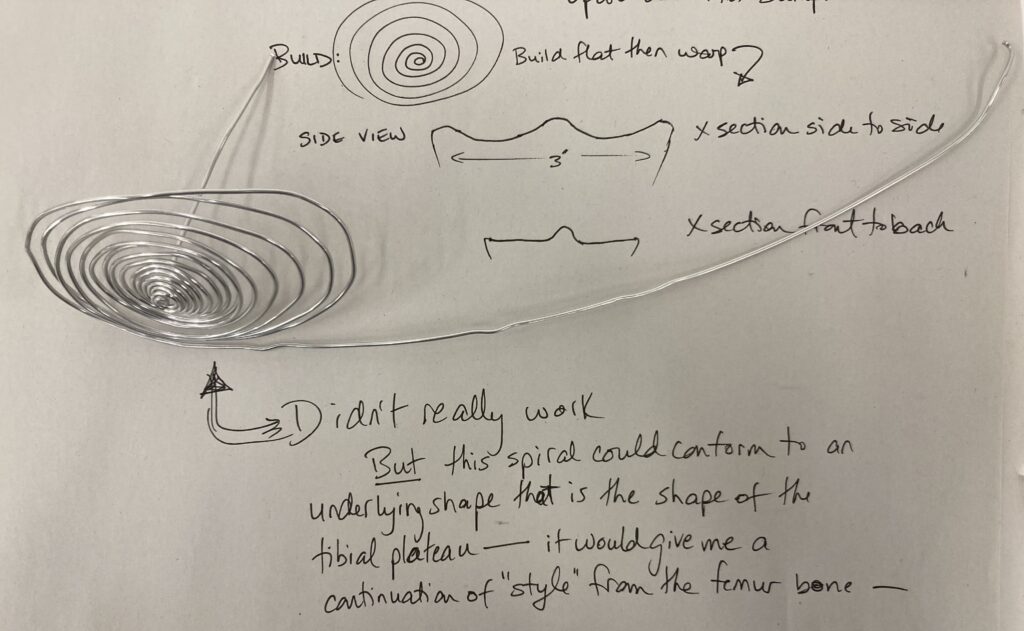 BUILD:
Build flat then warp
SIDE VIEW
3"
X section side to side
X section front to back
Didn't really work
But this spiral could conform to an
underlying shape that is the shape of the
tibial plateau — it would give me a
continuation of "style" from the femur bone —